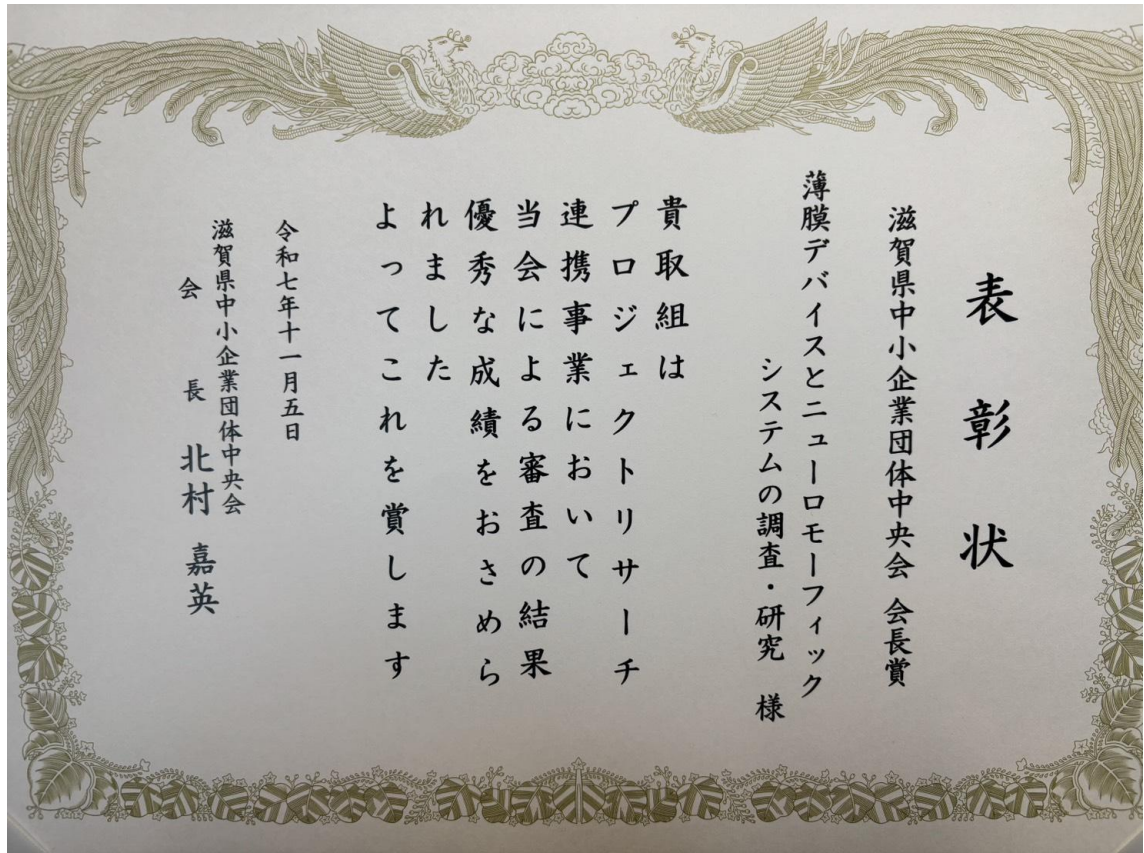 表彰状
滋賀県中小企業団体中央会 会長賞
薄膜デバイスとニューロモーフィック
システムの調査・研究 様
貴取組は
プロジェクトリサーチ
連携事業において
当会による審査の結果
優秀な成績をおさめら
れました
よってこれを賞します
令和七年十一月五日
滋賀県中小企業団体中央会
会長 北村 嘉英